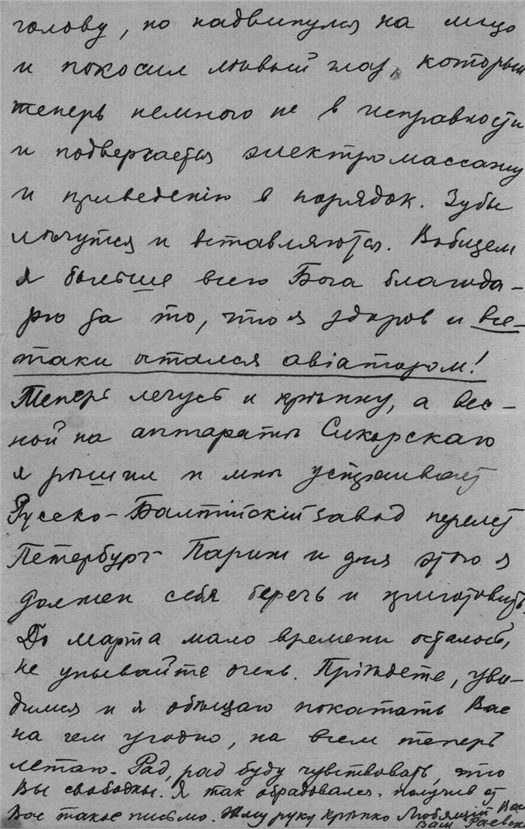 голову, но надвинулся на лицо
и покосил лѣвый глаз, который
теперь немного не в исправности
и подвергается электромассажу
и приведенію в порядок. Зубы
лѣчутся и вставляются. Вобщем
я больше всего Бога благода-
рю за то, что я здоров и все-
таки остался авіатором!
Теперь лечусь и крѣпну, а вес-
ной на аппаратѣ Сикорскаго
я рѣшил и мнѣ устраивает
Русско-Балтійскій завод перелет
Петербург-Париж и для этого я
должен себя беречь и приготовить.
До марта мало времени осталось,
не унывайте очень. Пріѣдете, уви-
димся и я обѣщаю покатать Вас
на чем угодно, на всем теперь
летаю. Рад, рад буду чувствовать, что
Вы свободны. Я так обрадовался, получив от
Вас такое письмо. Жму руку крѣпко Любящій Вас
Ваш Раевск